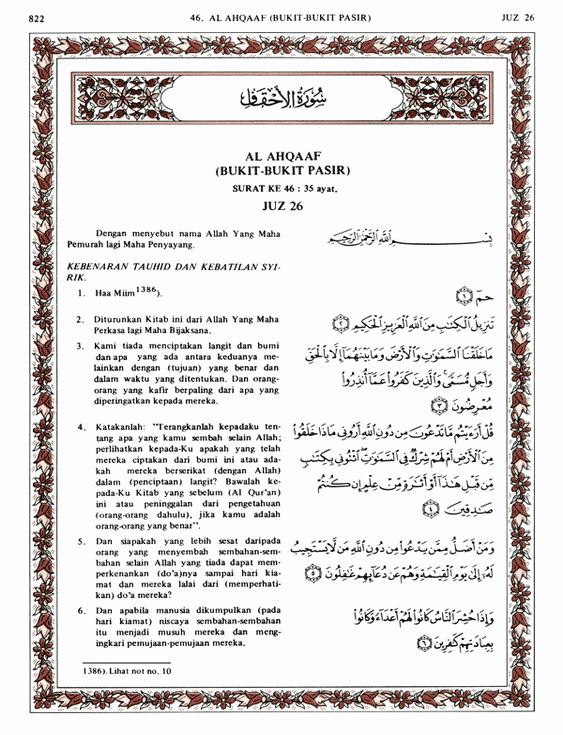 822
46. AL AHQAAF (BUKIT-BUKIT PASIR)
JUZ 26
سُورَةُ الأَحْقَافِ
AL AHQAAF
(BUKIT-BUKIT PASIR)
SURAT KE 46 : 35 ayat.
JUZ 26
Dengan menyebut nama Allah Yang Maha
Pemurah lagi Maha Penyayang.
بِسْمِ اللَّهِ الرَّحْمَٰنِ الرَّحِيمِ
KEBENARAN TAUHID DAN KEBATILAN SYI-
RIK.
1. Haa Miim1386).
حمٓ ﴿١﴾
2. Diturunkan Kitab ini dari Allah Yang Maha
Perkasa lagi Maha Bijaksana.
تَنزِيلُ الْكِتَٰبِ مِنَ اللَّهِ الْعَزِيزِ الْحَكِيمِ ﴿٢﴾
3. Kami tiada menciptakan langit dan bumi
dan apa yang ada antara keduanya me-
lainkan dengan (tujuan) yang benar dan
dalam waktu yang ditentukan. Dan orang-
orang yang kafir berpaling dari apa yang
diperingatkan kepada mereka.
مَا خَلَقْنَا السَّمَٰوَٰتِ وَالْأَرْضَ وَمَا بَيْنَهُمَآ إِلَّا بِالْحَقِّ
وَأَجَلٍ مُّسَمًّى ۚ وَالَّذِينَ كَفَرُوا عَمَّآ أُنذِرُوا
مُعْرِضُونَ ﴿٣﴾
4. Katakanlah: "Terangkanlah kepadaku ten-
tang apa yang kamu sembah selain Allah;
perlihatkan kepada-Ku apakah yang telah
mereka ciptakan dari bumi ini atau ada-
kah mereka berserikat (dengan Allah)
dalam (penciptaan) langit? Bawalah ke-
pada-Ku Kitab yang sebelum (Al Qur'an)
ini atau peninggalan dari pengetahuan
(orang-orang dahulu), jika kamu adalah
orang-orang yang benar".
قُلْ أَرَءَيْتُم مَّا تَدْعُونَ مِن دُونِ اللَّهِ أَرُونِي مَاذَا خَلَقُوا
مِنَ الْأَرْضِ أَمْ لَهُمْ شِرْكٌ فِي السَّمَٰوَٰتِ ۖ ائْتُونِي بِكِتَٰبٍ
مِّن قَبْلِ هَٰذَآ أَوْ أَثَٰرَةٍ مِّنْ عِلْمٍ إِن كُنتُمْ
صَٰدِقِينَ ﴿٤﴾
5. Dan siapakah yang lebih sesat daripada
orang yang menyembah sembahan-sem-
bahan selain Allah yang tiada dapat mem-
perkenankan (do'a)nya sampai hari kia-
mat dan mereka lalai dari (memperhati-
kan) do'a mereka?
وَمَنْ أَضَلُّ مِمَّن يَدْعُوا مِن دُونِ اللَّهِ مَن لَّا يَسْتَجِيبُ
لَهُۥٓ إِلَىٰ يَوْمِ الْقِيَٰمَةِ وَهُمْ عَن دُعَآئِهِمْ غَٰفِلُونَ ﴿٥﴾
6. Dan apabila manusia dikumpulkan (pada
hari kiamat) niscaya sembahan-sembahan
itu menjadi musuh mereka dan meng-
ingkari pemujaan-pemujaan mereka.
وَإِذَا حُشِرَ النَّاسُ كَانُوا لَهُمْ أَعْدَآءً وَكَانُوا
بِعِبَادَتِهِمْ كَٰفِرِينَ ﴿٦﴾
1386). Lihat not no. 10